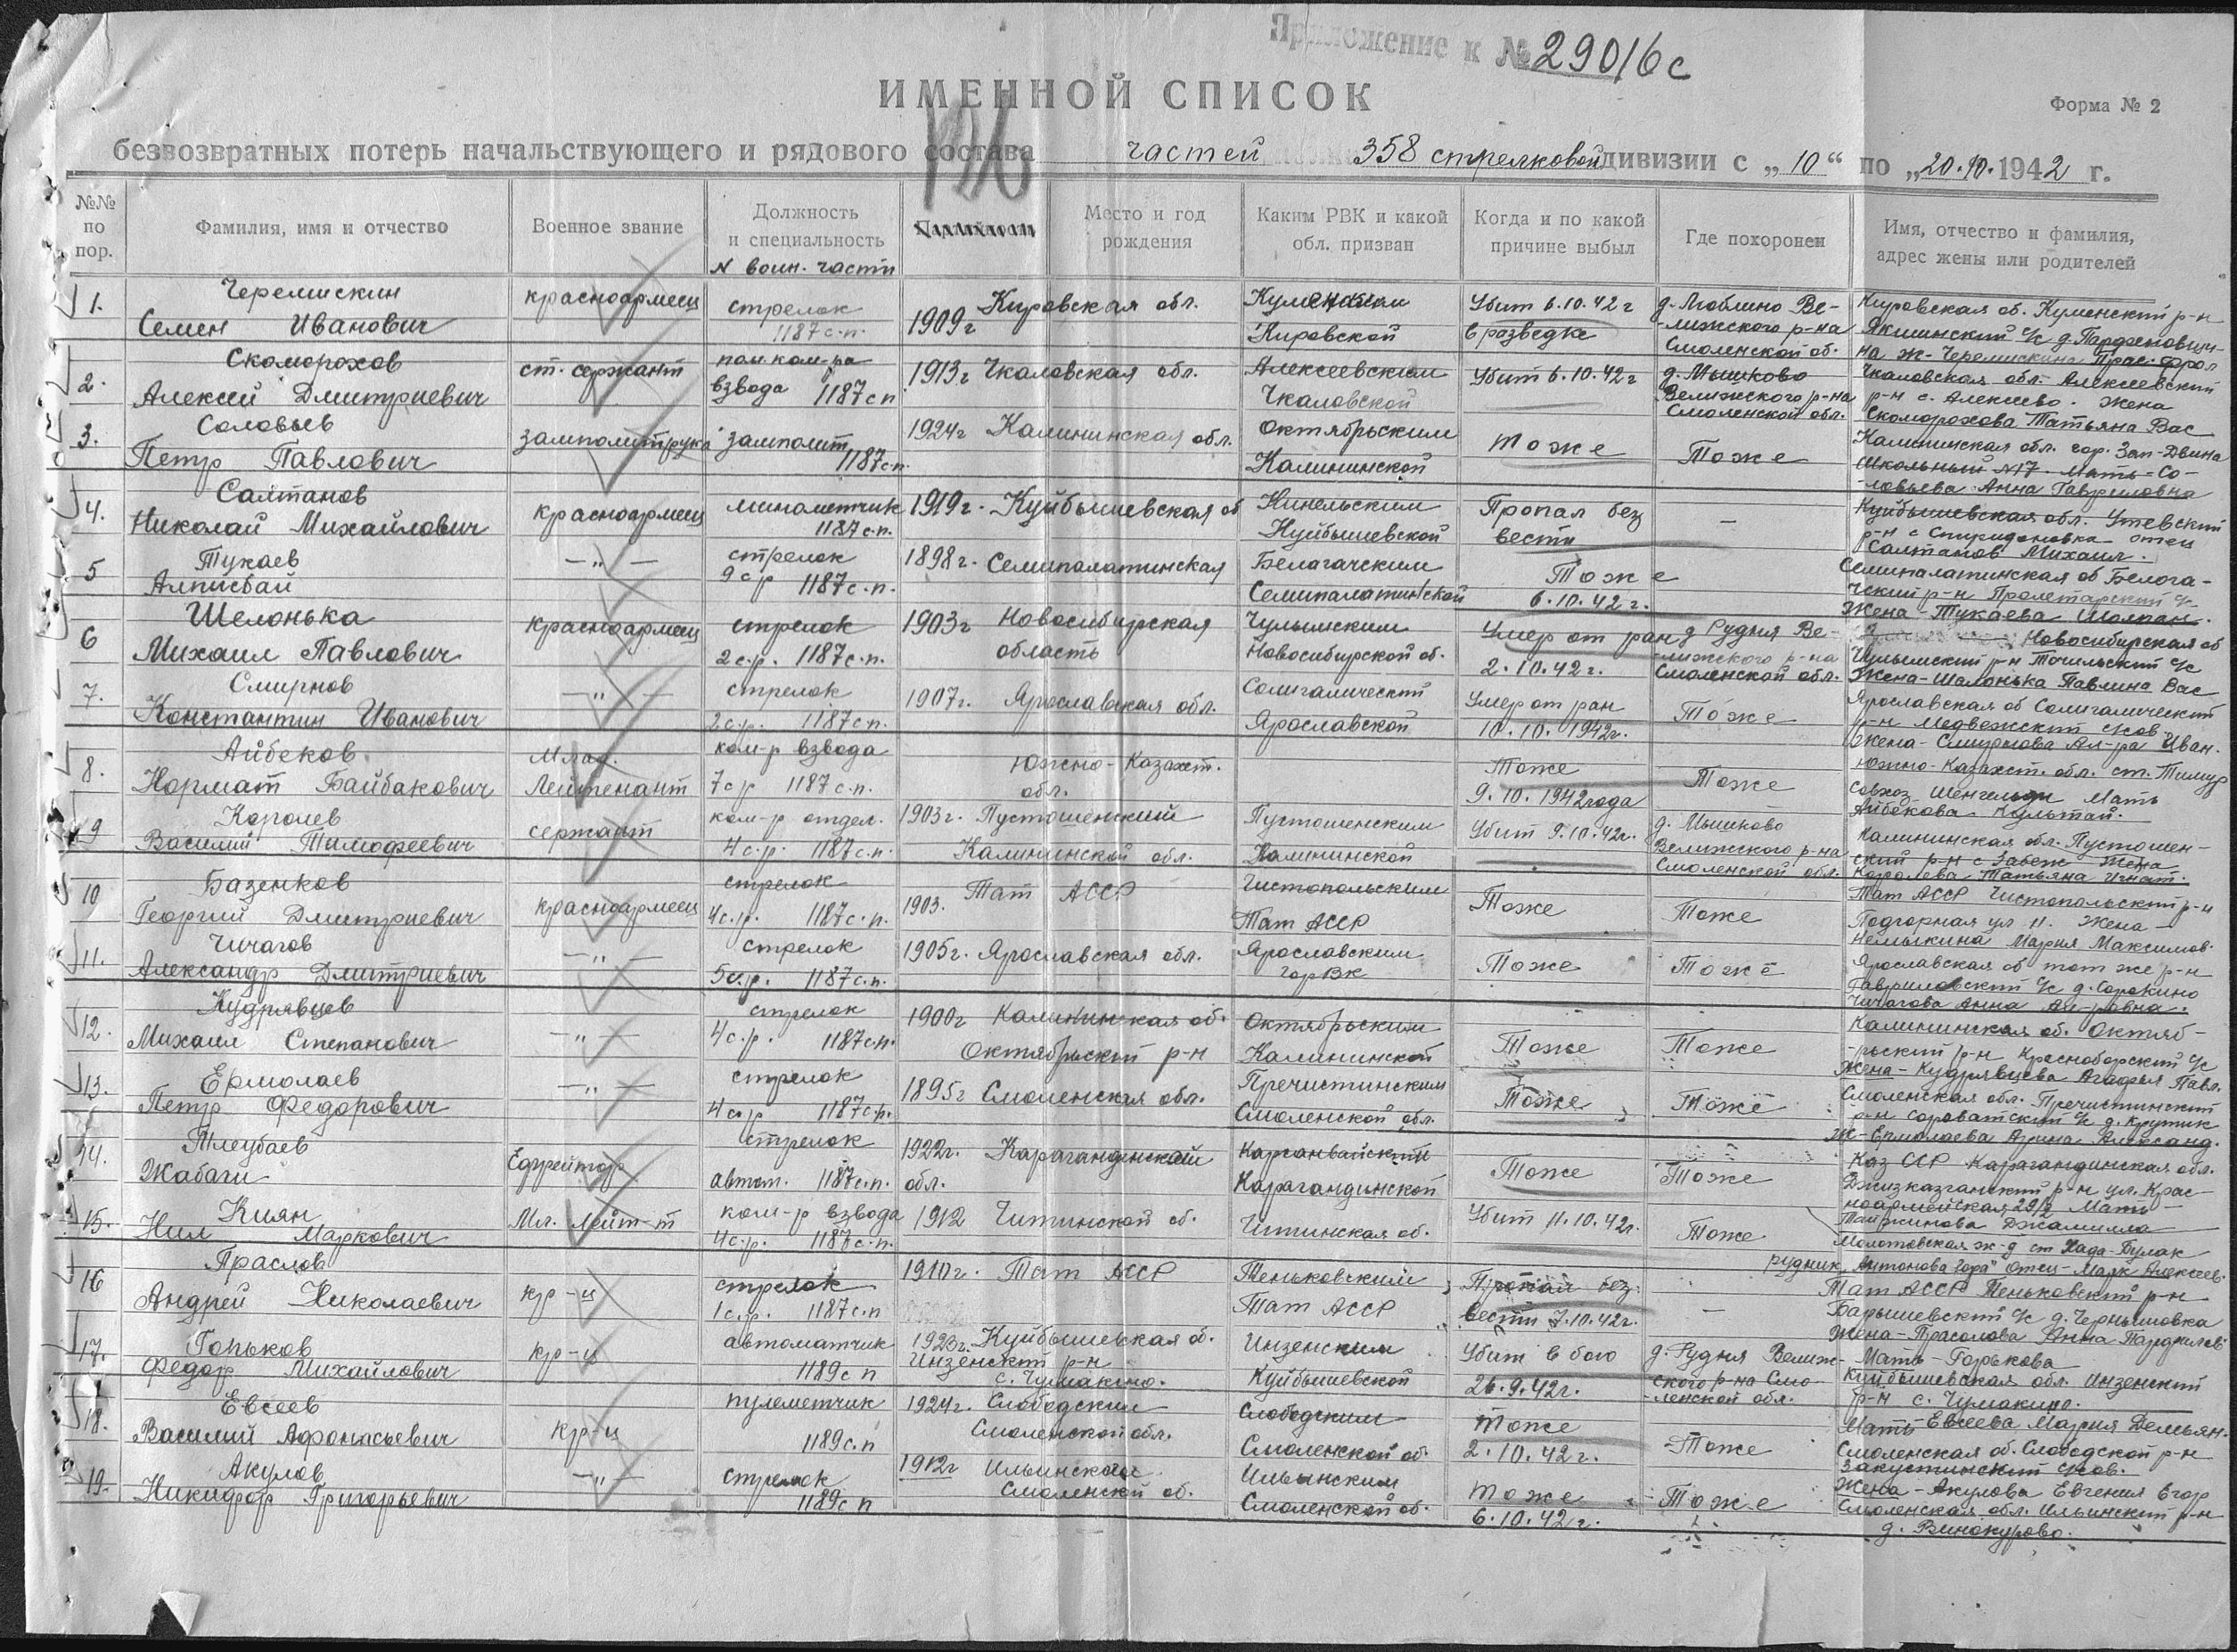 Приложение к № 29016с
ИМЕННОЙ СПИСОК
Форма № 2
безвозвратных потерь начальствующего и рядового состава частей 358 стрелковой дивизии с „10“ по „20.10.1942 г.
№№ по пор.
Фамилия, имя и отчество
Военное звание
Должность и специальность
N воин. части
Место и год рождения
Каким РВК и какой обл. призван
Когда и по какой причине выбыл
Где похоронен
Имя, отчество и фамилия, адрес жены или родителей
1. Черемискин Семен Иванович
красноармеец
стрелок 1187 с.п.
1909г Кировская обл.
Куменским Кировской
Убит 6.10.42г в разведке
д. Люблино Ве-
-лижского р-на
Смоленской об.
Кировская об. Куменский р-н
Якшинский с/с д. Парфеновщи-
на ж- Черемискина Прас. Фрол
2. Скоморохов Алексей Дмитриевич
ст. сержант
пом. ком-ра взвода 1187 сп
1913г Чкаловская обл.
Алексеевским Чкаловской
Убит 6.10.42г
д. Мышково
Велижского р-на
Смоленской обл.
Чкаловская обл. Алексеевский
р-н с. Алексеево. Жена
Скоморохова Татьяна Вас
3. Соловьев Петр Павлович
замполитрука
замполит 1187 с.п.
1924г Калининская обл.
Октябрьским Калининской
Тоже
Тоже
Калининская обл. гор. Зап-Двина
Школьный N17. Мать-Со-
-ловьева Анна Гавриловна
4. Салтанов Николай Михайлович
красноармеец
минометчик 1187 с.п.
1919г. Куйбышевская об
Кинельским Куйбышевской
Пропал без вести
–
Куйбышевская обл. Утевский
р-н с Спиридоновка отец
Салтанов Михаил.
5 Тукаев Алписбай
— „ —
стрелок 9 ср 1187 с.п.
1898г. Семипалатинская
Белагачским Семипалатинской
Тоже 6.10.42г.
Семипалатинская об Белога-
чский р-н Пролетарский с/с
Жена- Тукаева Шолпан.
6 Шелонька Михаил Павлович
красноармеец
стрелок 2 с.р. 1187 с.п.
1903г Новосибирская область
Чулымским Новосибирской об.
Умер от ран 2.10.42г.
д Рудня Ве-
-лижского р-на
Смоленской обл.
Новосибирская об
Чулымский р-н Точильский с/с
Жена-Шалонька Павлина Вас
7. Смирнов Константин Иванович
— „ —
стрелок 2с.р. 1187 с.п.
1907г. Ярославская обл.
Солигалический Ярославской
Умер от ран 10.10.1942г.
Тоже
Ярославская об Солигалический
р-н Медвежский с/сов.
Жена- Смирнова Ал-ра Иван.
8. Айбеков Нормат Байбакович
Млад. Лейтенант
ком-р взвода 7 ср 1187 с.п.
Южно-Казахст. обл.
Тоже 9.10.1942года
Тоже
Южно-Казахст. обл. ст. Тимур
Совхоз Шенгельди Мать
Айбекова Культай.
9 Королев Василий Тимофеевич
сержант
ком-р отдел. 4 с.р. 1187 с.п.
1903г. Пустошенский Калининской обл.
Пустошенским Калининской
Убит 9.10.42г.
д. Мышково
Велижского р-на
Смоленской обл.
Калининская обл. Пустошен-
ский р-н с Забеж Жена
Королева Татьяна Игнат.
10 Базенков Георгий Дмитриевич
красноармеец
стрелок 4с.р. 1187 с.п.
1903. Тат АССР
Чистопольским Тат АССР
Тоже
Тоже
Тат АССР Чистопольский р-н
Подгорная ул 11. Жена –
Немыкина Мария Максимов.
11. Чичагов Александр Дмитриевич
— „ —
стрелок 5с.р. 1187 с.п.
1905г. Ярославская обл.
Ярославским горВК
Тоже
Тоже
Ярославская об тот же р-н
Гавриловский с/с д. Сорокино
Чичагова Анна Ал-ровна.
12. Кудрявцев Михаил Степанович
— „ —
стрелок 4 с.р. 1187 с.п.
1900г Калининская об. Октябрьский р-н
Октябрьским Калининской
Тоже
Тоже
Калининская об. Октяб-
-рьский р-н Красноборский с/с
Жена- Кудрявцева Агафья Павл.
13. Ермолаев Петр Федорович
— „ —
стрелок 4 с.р 1187 с.п.
1895г Смоленская обл.
Пречистинским Смоленской обл.
Тоже
Тоже
Смоленская обл. Пречистинский
р-н с/с д. Крутик
Ж-Ермолаева Арина Александ.
14. Тлеубаев Жабаги
Ефрейтор
стрелок автом. 1187 с.п.
1922г. Карагандинской обл.
Карагандинской
Тоже
Тоже
Каз ССР Карагандинская обл.
Джизказганский р-н ул. Крас-
ноармейская 29/2 Мать –
Джамилла
15. Киян Нил Маркович
Мл. лейт-т
ком-р взвода 4с.р. 1187 с.п.
1912 Читинской об.
Читинская об.
Убит 11.10.42г.
Тоже
Молотовская ж-д ст Хада-Булак
рудник „Антонова гора" Отец- Марк Алексеев.
16 Праслов Андрей Николаевич
кр-ц
стрелок 1с.р. 1187 с.п
1910г. Тат АССР
Теньковским Тат АССР
Пропал без вести 7.10.42г.
–
Тат АССР Теньковский р-н
Барышевский с/с д. Чернышовка
Жена-Прасолова Анна Парфилов.
17. Горьков Федор Михайлович
кр-ц
автоматчик 1189 с п
1923г. Куйбышевская об.
Инзенский р-н
с. Чумакино.
Инзенским Куйбышевской
Убит в бою 26.9.42г.
д. Рудня Велиж-
ского р-на Смо-
-ленской обл.
Мать-Горькова
Куйбышевская обл. Инзенский
р-н с. Чумакино.
18. Евсеев Василий Афонасьевич
кр-ц
пулеметчик 1189 с.п
1924г. Слободским Смоленской обл.
Слободским Смоленской об.
Тоже 2.10.42г.
Тоже
Мать Евсеева Мария Демьян.
Смоленская об. Слободской р-н
Закустинский с/сов.
19. Акулов Никифор Григорьевич
— „ —
стрелок 1189 с п
1912г Ильинского Смоленской об.
Ильинским Смоленской об.
Тоже 6.10.42г.
Тоже
Жена-Акулова Евгения Егор
Смоленская обл. Ильинский р-н
д. Винокурово.